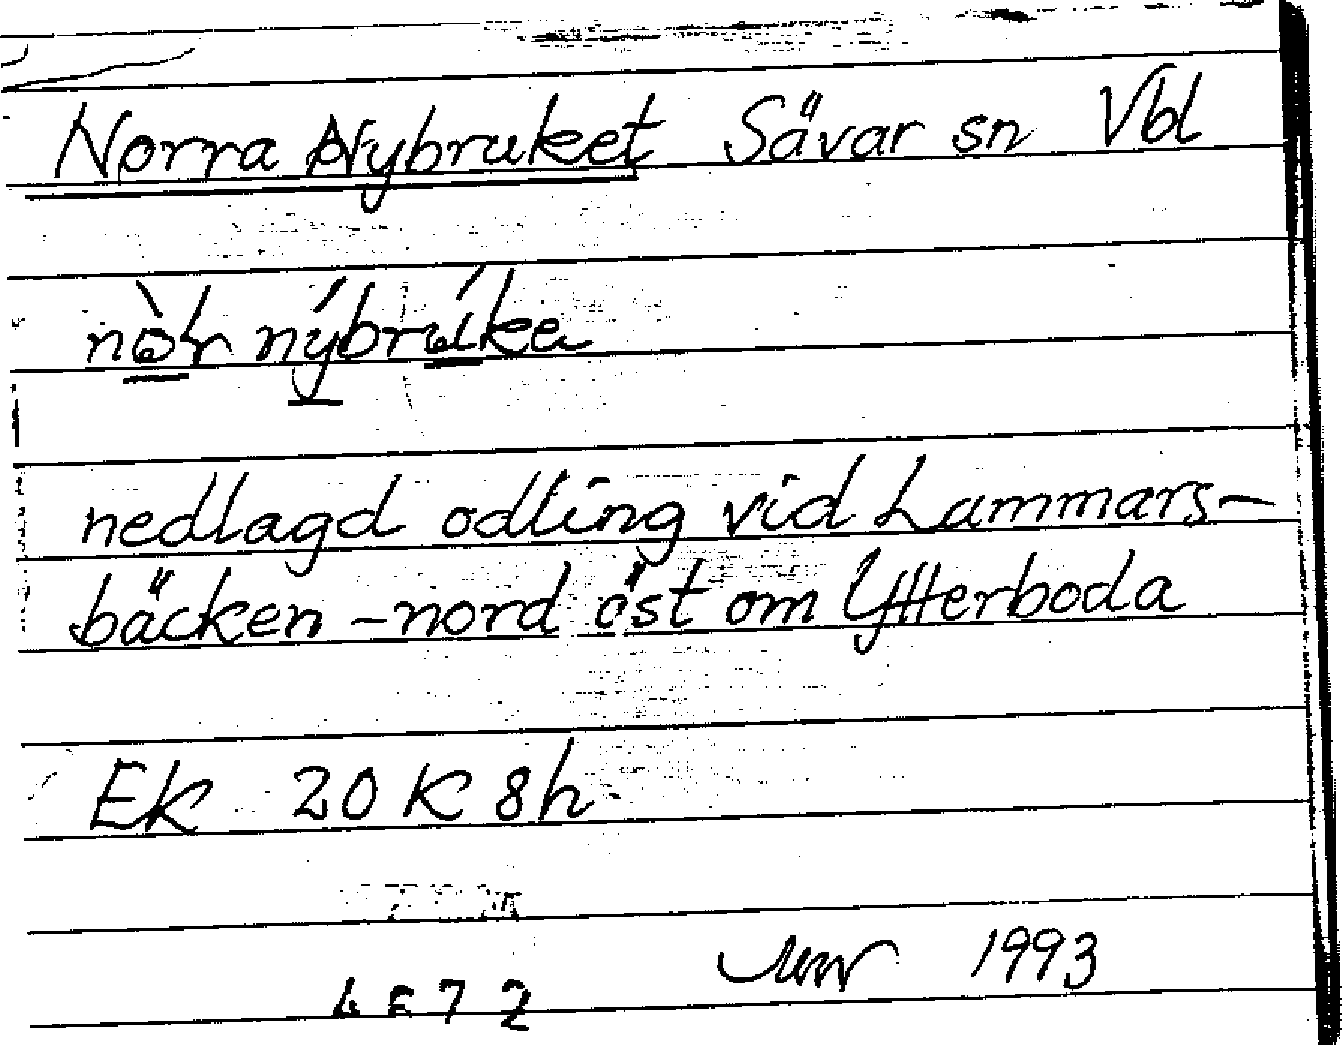 Norra Nybruket Sävar sn Vbl
nòr nýbrúka
nedlagd odling vid Lammars-
bäcken - nord öst om Ytterboda
Ek 20 K 8h
1993